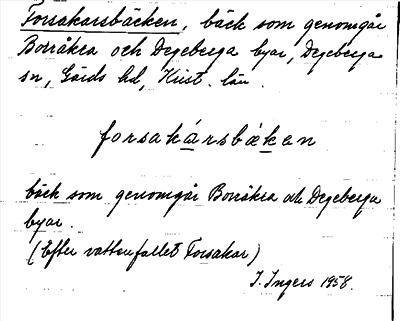 Forsakarsbäcken, bäck som genomgår
Borråkra och Degeberga byar, Degeberga
sn, Gärds hd, Krist. län
forsakársbæken
bäck som genomgår Borråkra och Degeberga
byar.
(Efter vattenfallet Forsakar)
I. Ingers 1958.